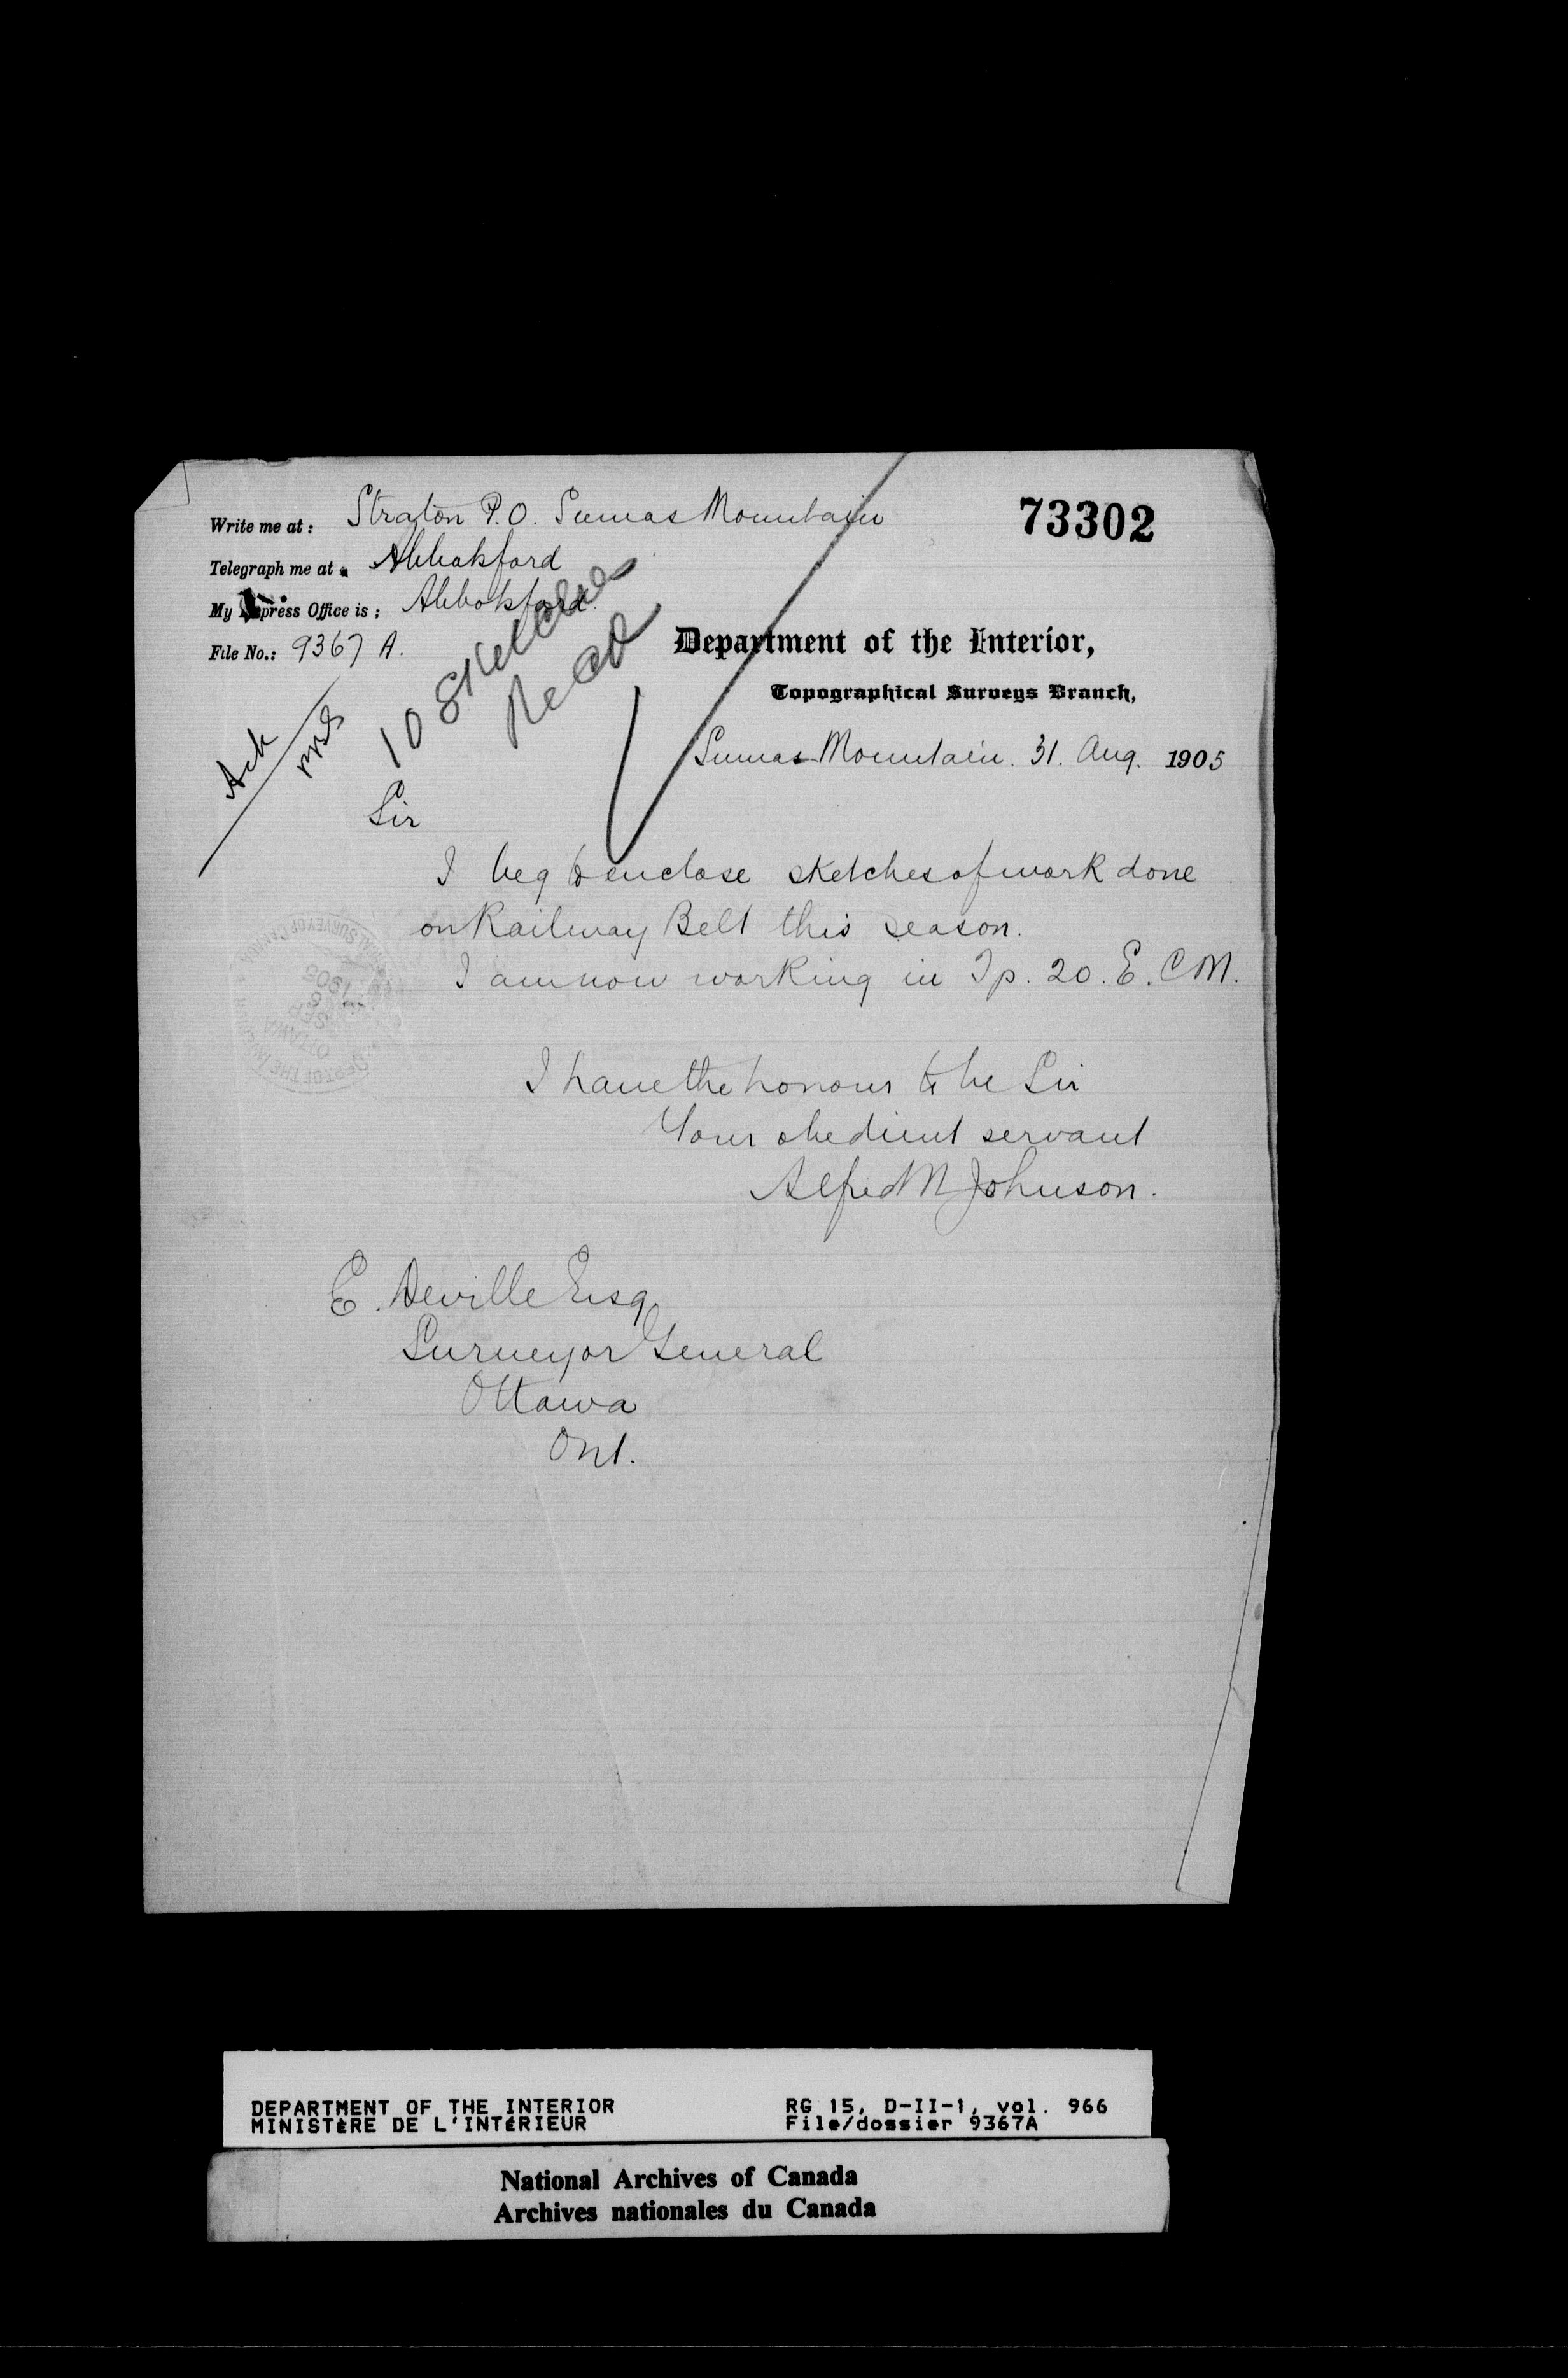 Write me at: Straton P.O. Sumas Mountain
73302
Telegraph me at: Abbotsford
My Express Office is: Abbotsford.
File No.: 9367 A.
10 Sketches
Recd
Ack
Department of the Interior,
Topographical Surveys Branch,
Sumas Mountain. 31. Aug. 1905
Sir
I beg to enclose sketches of work done
on Railway Belt this season.
I am now working in Tp. 20. E. C M.
I have the honour to be Sir
Your obedient servant
Alfred M Johnson.
E. Deville Esq.
Surveyor General
Ottawa
Ont.
DEPT OF THE INTERIOR
OTTAWA
SEP 6
1905
DEPARTMENT OF THE INTERIOR
MINISTÈRE DE L'INTÉRIEUR
RG 15, D-II-1, vol. 966
File/dossier 9367A
National Archives of Canada
Archives nationales du Canada